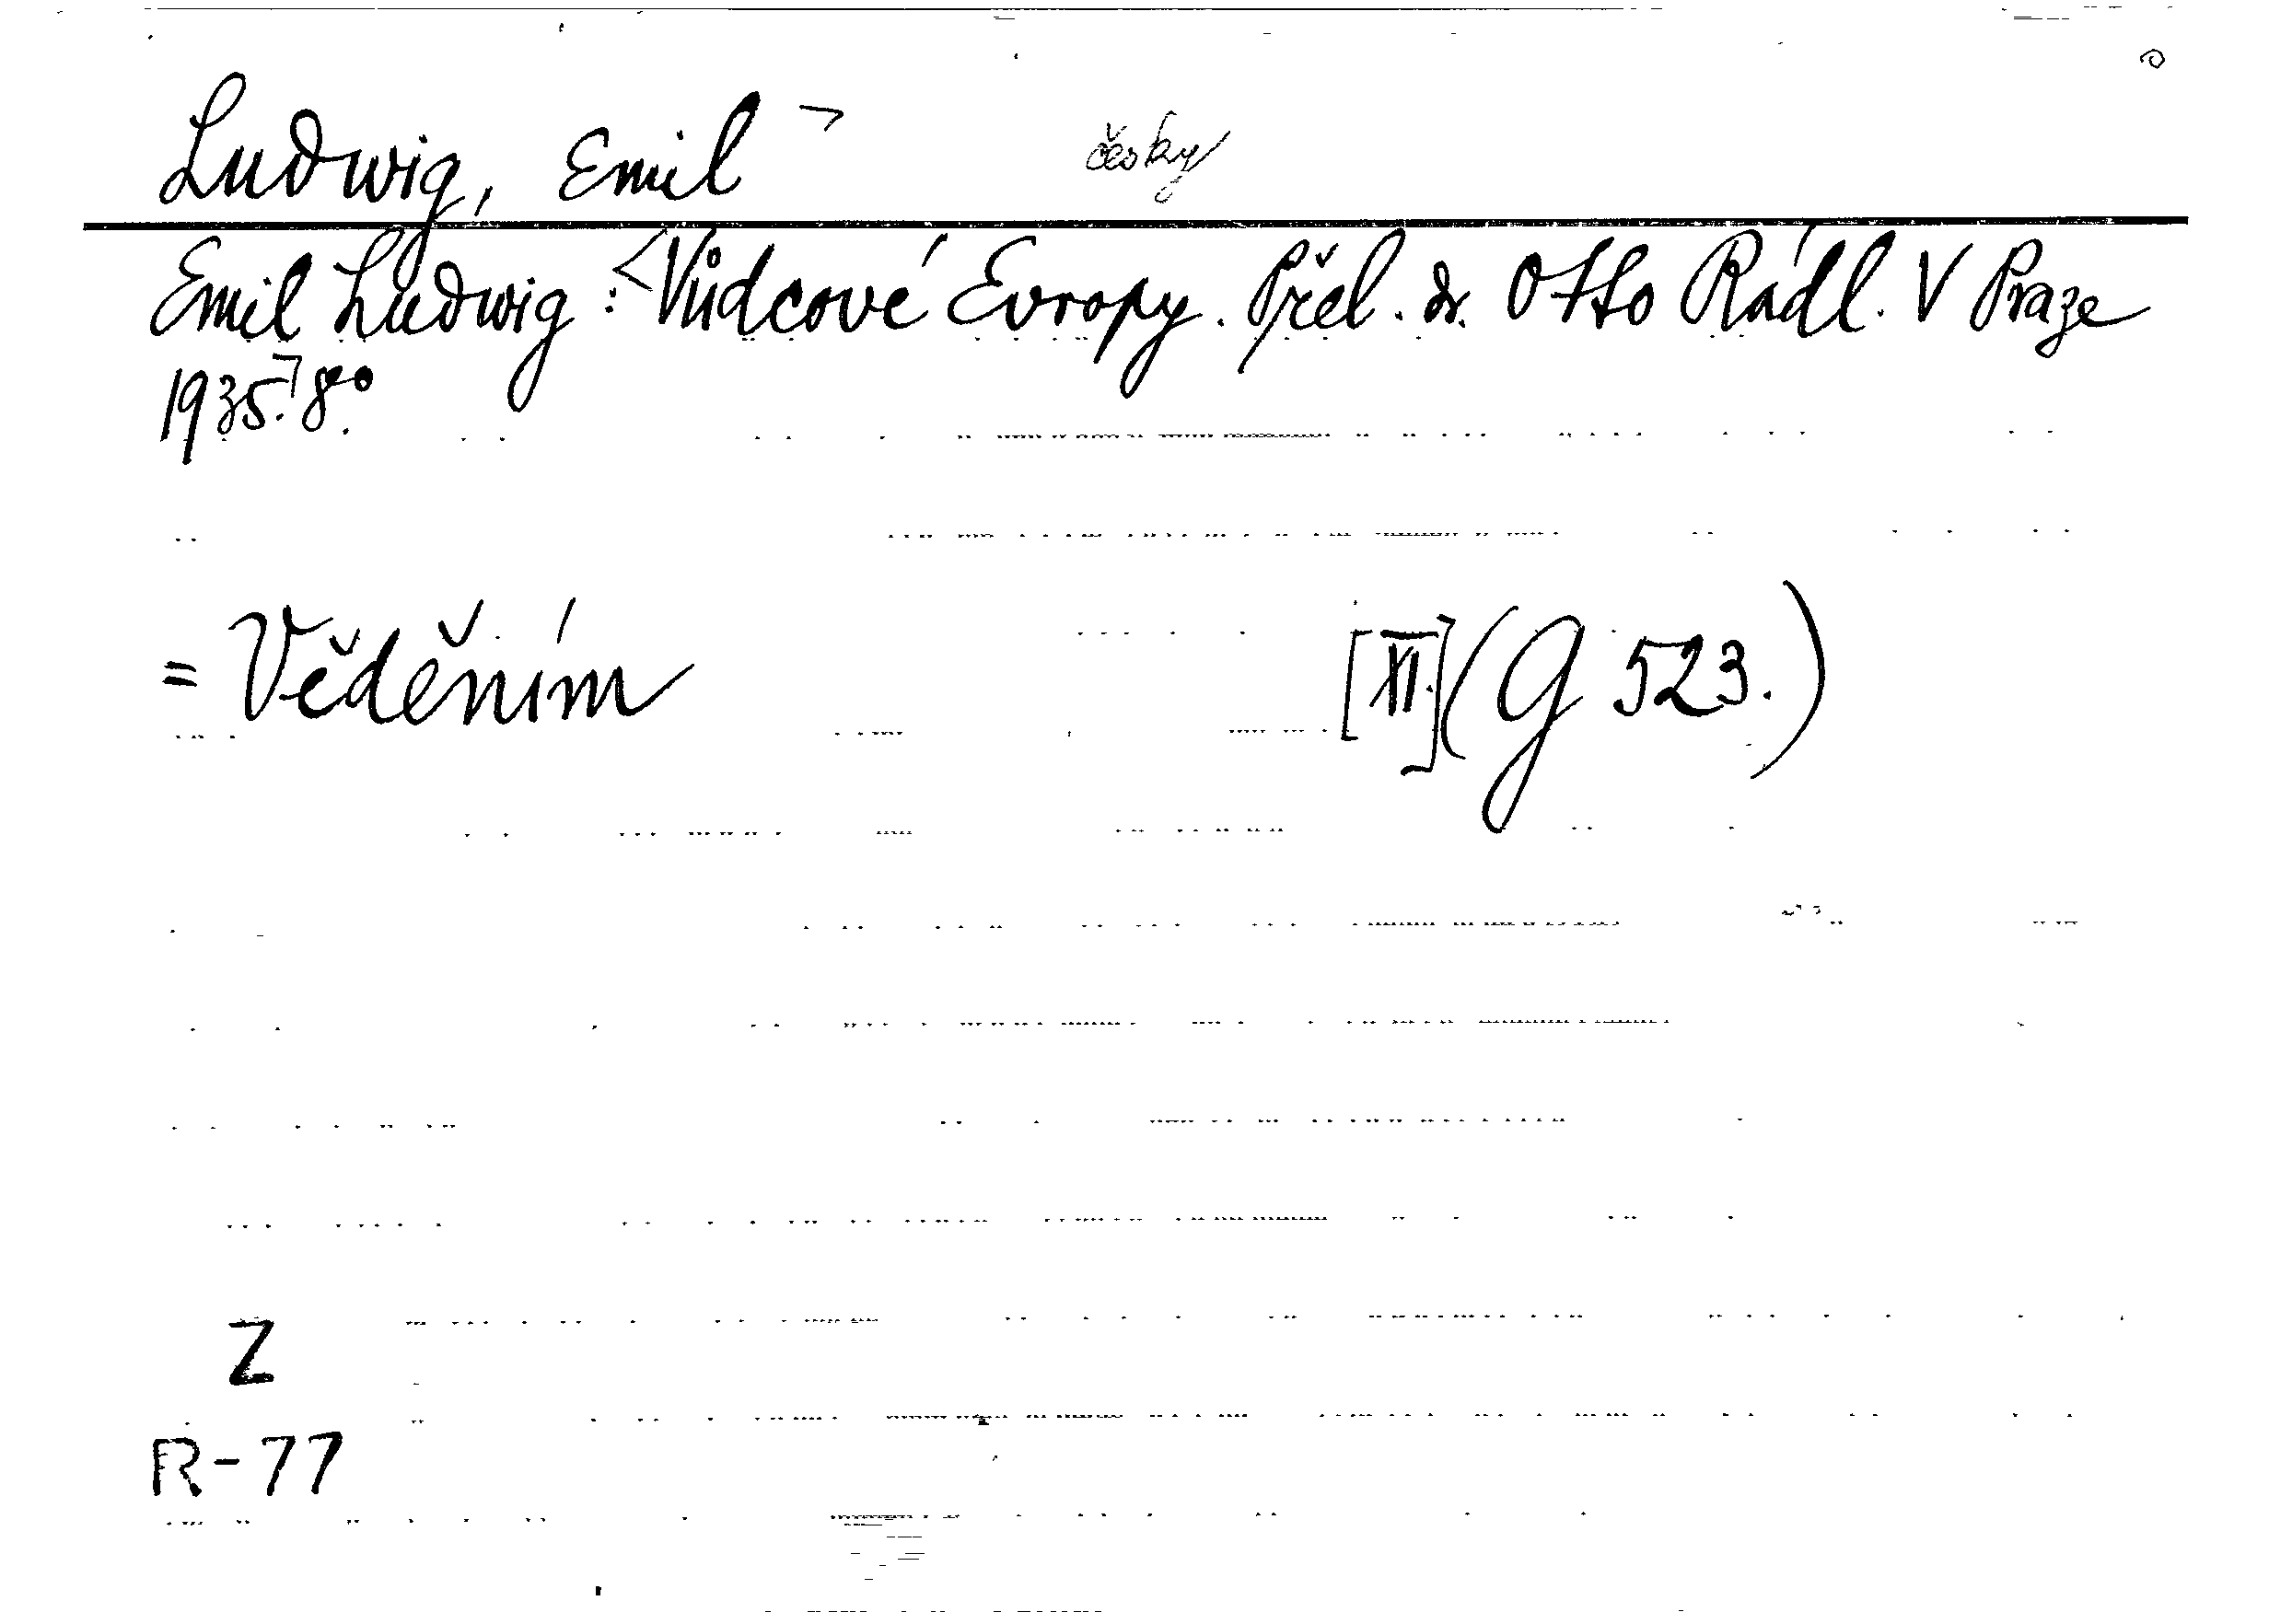 Ludwig, Emil ¬ česky
Emil Ludwig: <Vůdcové Evropy. Přel. dr. Otto Rádl. V Praze
1935.¬ 8°.
= Věděním [XI.] (G 523.)
Z
R-77